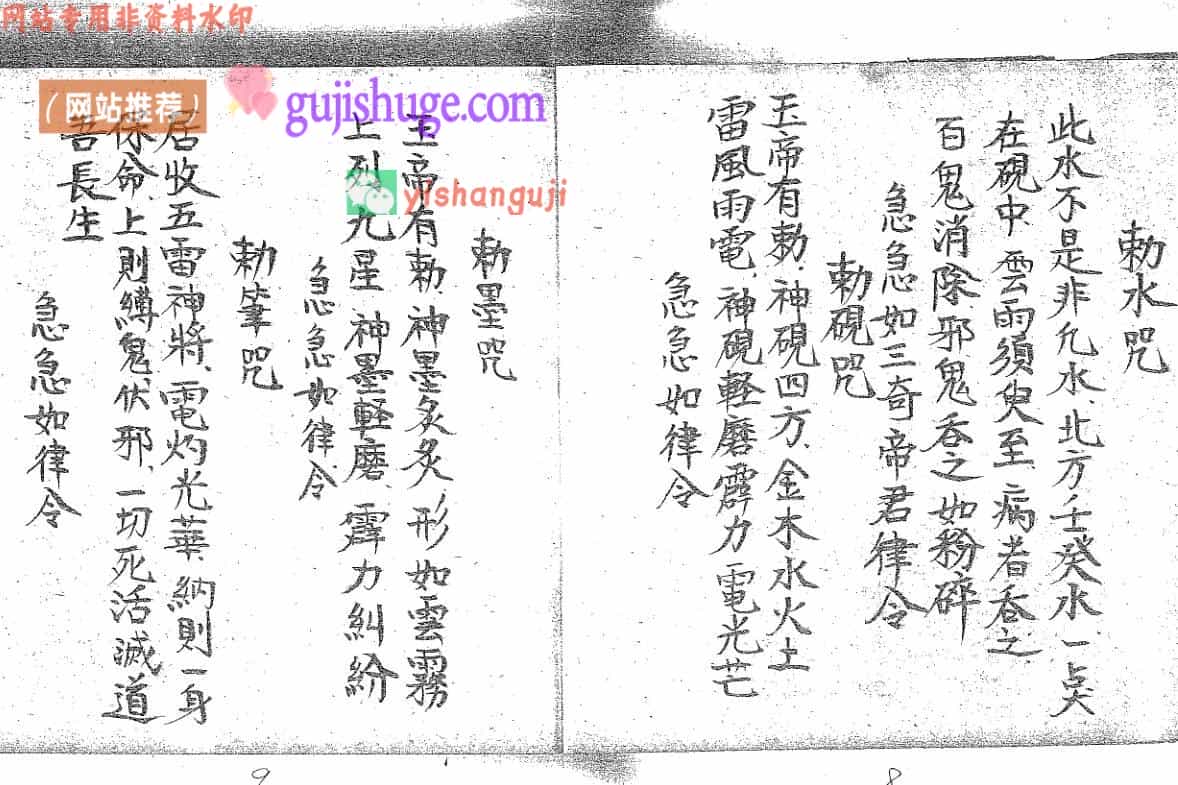 网站专用非资料水印
（网站推荐）
gujishuge.com
yishanguji
勅水咒
此水不是非凡水、北方壬癸水、一点
在硯中、雲雨須臾至、病者吞之、
百鬼消除、邪鬼吞之如粉碎
急急如三奇帝君律令
勅硯咒
玉帝有勅、神硯四方、金木水火土
雷風雨電、神硯軽磨霹力電光芒
急急如律令
勅墨咒
玉帝有勅、神墨炙炙、形如雲霧
上列九星、神墨軽磨、霹力糾紛
急急如律令
勅筆咒
居收五雷神將、電灼光華、納則一身
保命、上則縛鬼伏邪、一切死活滅道
吾長生
急急如律令
8
9